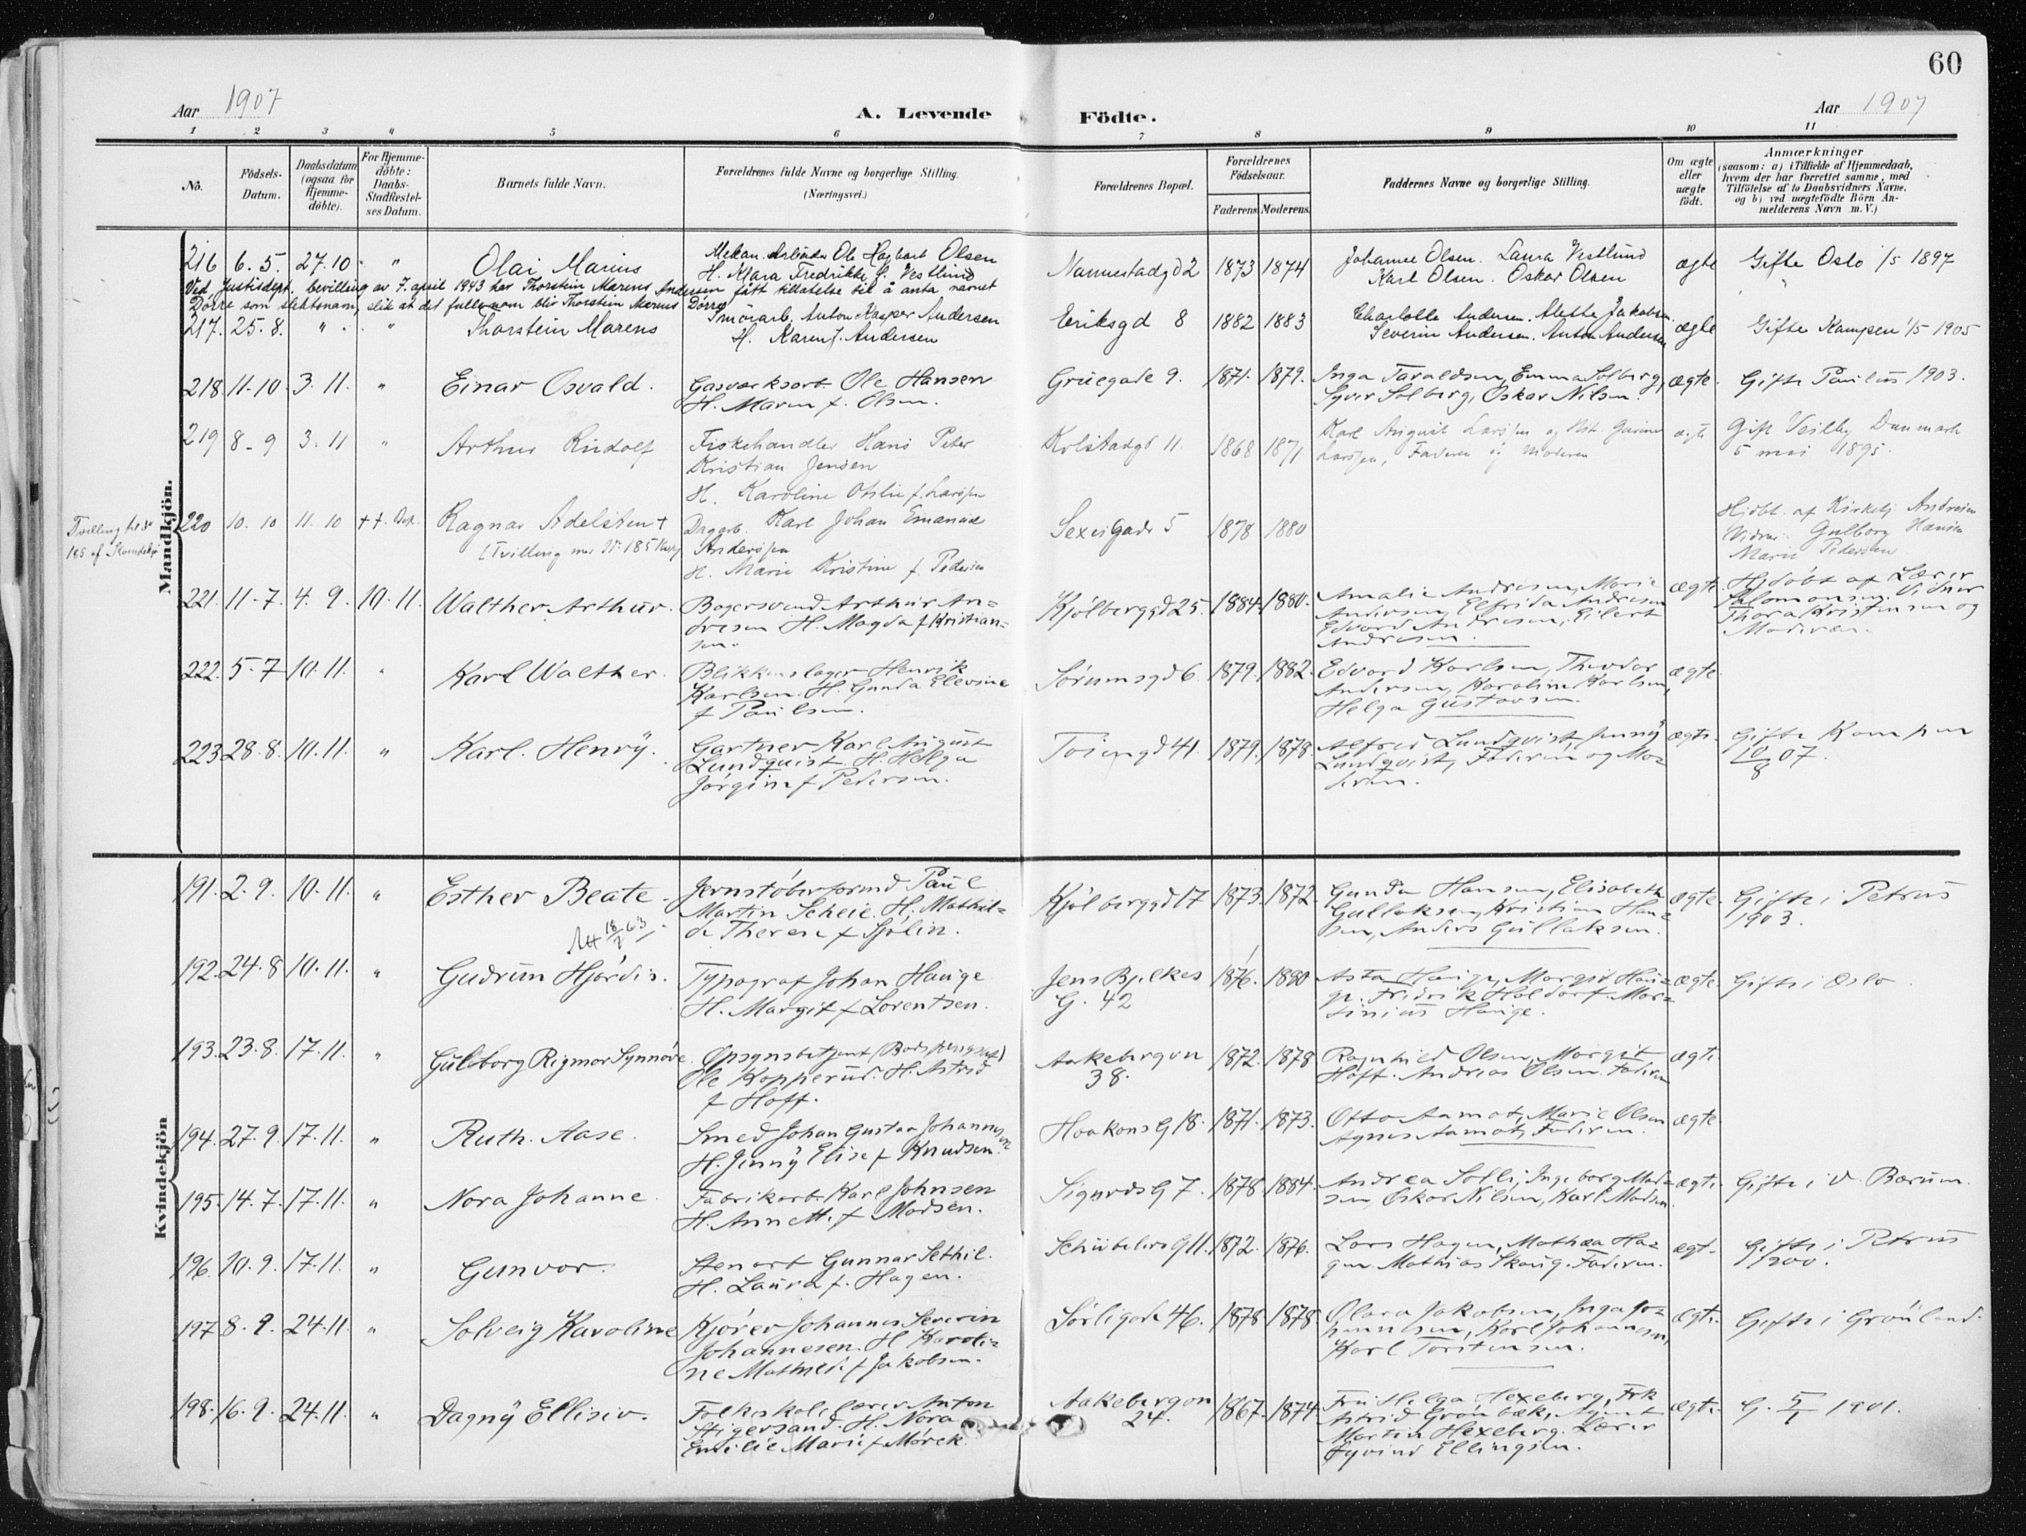 60
Aar 1907
A. Levende Födte.
Aar 1907
1 2 3 4 5 6 7 8 9 10 11
No.
Födsels-Datum.
Daabsdatum (ogsaa for Hjemme-döbte).
For Hjemme-döbte: Daabs-Stadfæstel-ses Datum.
Barnets fulde Navn.
Forældrenes fulde Navne og borgerlige Stilling. (Næringsvei.)
Forældrenes Bopæl.
Forældrenes Födselsaar.
Faderens. Moderens.
Faddernes Navne og borgerlige Stilling.
Om ægte eller uægte födt.
Anmærkninger
(saasom: a) i Tilfælde af Hjemmedaab,
hvem der har forrettet samme, med
Tilföielse af to Daabsvidners Navne,
og b) ved uægtefödte Börn An-
melderens Navn m. V.)
Mandkjön.
216 6. 5. 27. 10 " Olai Marius
Mekan. Arbeider Ole Hagbart Olsen
H. Klara Fredrikke f. Vestlund
Nannestadgd 2 1873 1874
Johanne Olsen. Laura Vestlund
Karl Olsen. Oskar Olsen
ægte Gifte Oslo 1/5 1897
Ved Justisdept. bevilling av 7. april 1943 har Thorstein Marens Andersen fått tillatelse til å anta navnet
Dørre som slektsnavn, slik at det fulle navn blir Thorstein Marens Dørre
217. 25. 8. " " Thorstein Marens
Smörarb. Anton Kasper Andersen
H. Karen J. Andersen
Eriksgd 8 1882 1883
Charlotte Andersen. Alette Jakobsen
Severin Andersen. Anton Andersen
ægte Gifte Kampen 1/5 1905
218. 11. 10. 3. 11. " Einar Osvald.
Gasværksarb. Ole Hansen
H. Maren f. Olsen.
Gruegade 9. 1871. 1879.
Inga Taraldsen, Emma Solberg,
Syver Solberg, Oskar Nilsen.
ægte. Gifte Paulus 1903.
219 8-9 3. 11 " Arthur Rudolf
Fiskehandler Hans Peter
Kristian Jensen
H. Karoline Otilie f. Larsen
Kolstadgd 11. 1868 1871
Karl August Larsen
Larsen, Faderen og Moderen
ægte Gift Veilby Danmark
5 mai 1895.
Tvilling
185 af Kvindekj
220 10. 10 11. 10 Ragnar Adelsten +
(Tvilling med No 185
Dagarb. Karl Johan Emanuel
Andersen
H. Marie Kristine f. Pedersen
Sexesgade 5 1878 1880
Hjdbt. af Kirketj. Andresen
Vidner Gulborg Hansen
Marie Pedersen
221. 11-7. 4. 9. 10. 11. Walther Arthur.
Bagersvend Arthur An-
dresen H. Magda f Kristian-
sen.
Kjølberggd 25. 1884. 1880.
Amalie Andresen, Marie
Andersen, Elfrida Andresen
Edvard Andresen, Eilert
Andresen.
ægte. Hjdöbt af Lærer
Salomonsen. Vidner
Thora Kristensen og
Moderen.
222. 5-7 10. 11. " Karl Walther.
Blikkenslager Henrik
Karlsen. H. Gunda Elevine
f Paulsen.
Sørumsgd 6 1879. 1882.
Edvard Karlsen, Theodor
Andersen, Karoline Karlsen,
Helga Gustavsen.
ægte.
223 28. 8. 10. 11. " Karl. Henry.
Gartner Karl August
Lundquist. H. Helga
Jørgine f Pedersen.
Tøiengd 41. 1879. 1878
Alfred Lundquist, Jenny
Lundquist, Faderen og Mo-
deren.
ægte. Gifte Kampen
10/8 07.
Kvindekjön
191. 2. 9. 10. 11. " Esther Beate.
Jernstöberformd Paul
Martin Scheie. H. Mathil-
de Therese f Sjölin.
Kjølberggd 17 1873. 1872.
Gunda Hansen, Elisabeth
Gullaksen, Kristian Han-
sen, Anders Gullaksen.
ægte. Gifte i Petrus
1903.
18/7 63
192. 24. 8 10. 11. " Gudrun Hjördis.
Typograf Johan Hauge
H. Margit f Lorentsen.
Jens Bjelkes
G. 42 1876. 1880
Asta Hauge, Margit Hau-
ge. Fredrik Mar-
tinius Hauge.
ægte. Gifte i Oslo.
193. 23. 8. 17. 11. " Gulborg Rigmor Synnöve
Opsynsbetjent (Bodsfængslet)
Ole Kopperud. H. Astrid
f Hoff.
Aakebergvn
38. 1872. 1878
Ragnhild Olsen, Margit
Hoff. Andreas Olsen. Faderen
ægte
194. 27. 9. 17. 11. " Ruth. Aase.
Smed Johan Gustav Johannessen
H. Jenny Elise f Knudsen.
HaakonsG 18. 1871. 1873.
Otto Aamot, Marie Olsen
Agnes Aamot, Faderen.
ægte.
195. 14. 7. 17. 11. " Nora Johanne.
Fabrikarb. Karl Johnsen
H. Annette f Madsen.
SigurdsG 7. 1878 1884.
Andrea Solli, Ingeborg Mad-
sen, Oskar Nilsen, Karl Madsen
ægte. Gifte i V. Bærum.
196. 10. 9. 17. 11. " Gunvor.
Stenarb Gunnar Sethil.
H. Laura f. Hagen.
SchübelersG 11. 1872. 1876.
Lars Hagen, Mathea Ha-
gen. Mathias Skaug. Faderen.
ægte. Gifte i Petrus
1900.
197 8. 9. 24. 11. " Solveig Karoline
Kjører Johannes Severin
Johannesen. H Karoli-
ne Mathilde f Jakobsen.
Sørligade 46. 1878 1878
Olara Jakobsen, Inga Jo-
hannesen, Karl Johannesen,
Karl Torstensen.
ægte. Gifte i Grønland.
198. 16. 9. 24. 11. " Dagny Ellisiv.
Folkeskolelærer Anton
Stigersand. H. Nora
Emilie Marie f Mørck.
Aakebergvn
24. 1867. 1874
Fru Helga Hexeberg, Frk
Astrid Grønbæk, Agent
Martin Hexeberg. Lærer
Øyvind Ellingsen.
ægte. G. 5/1 1901.